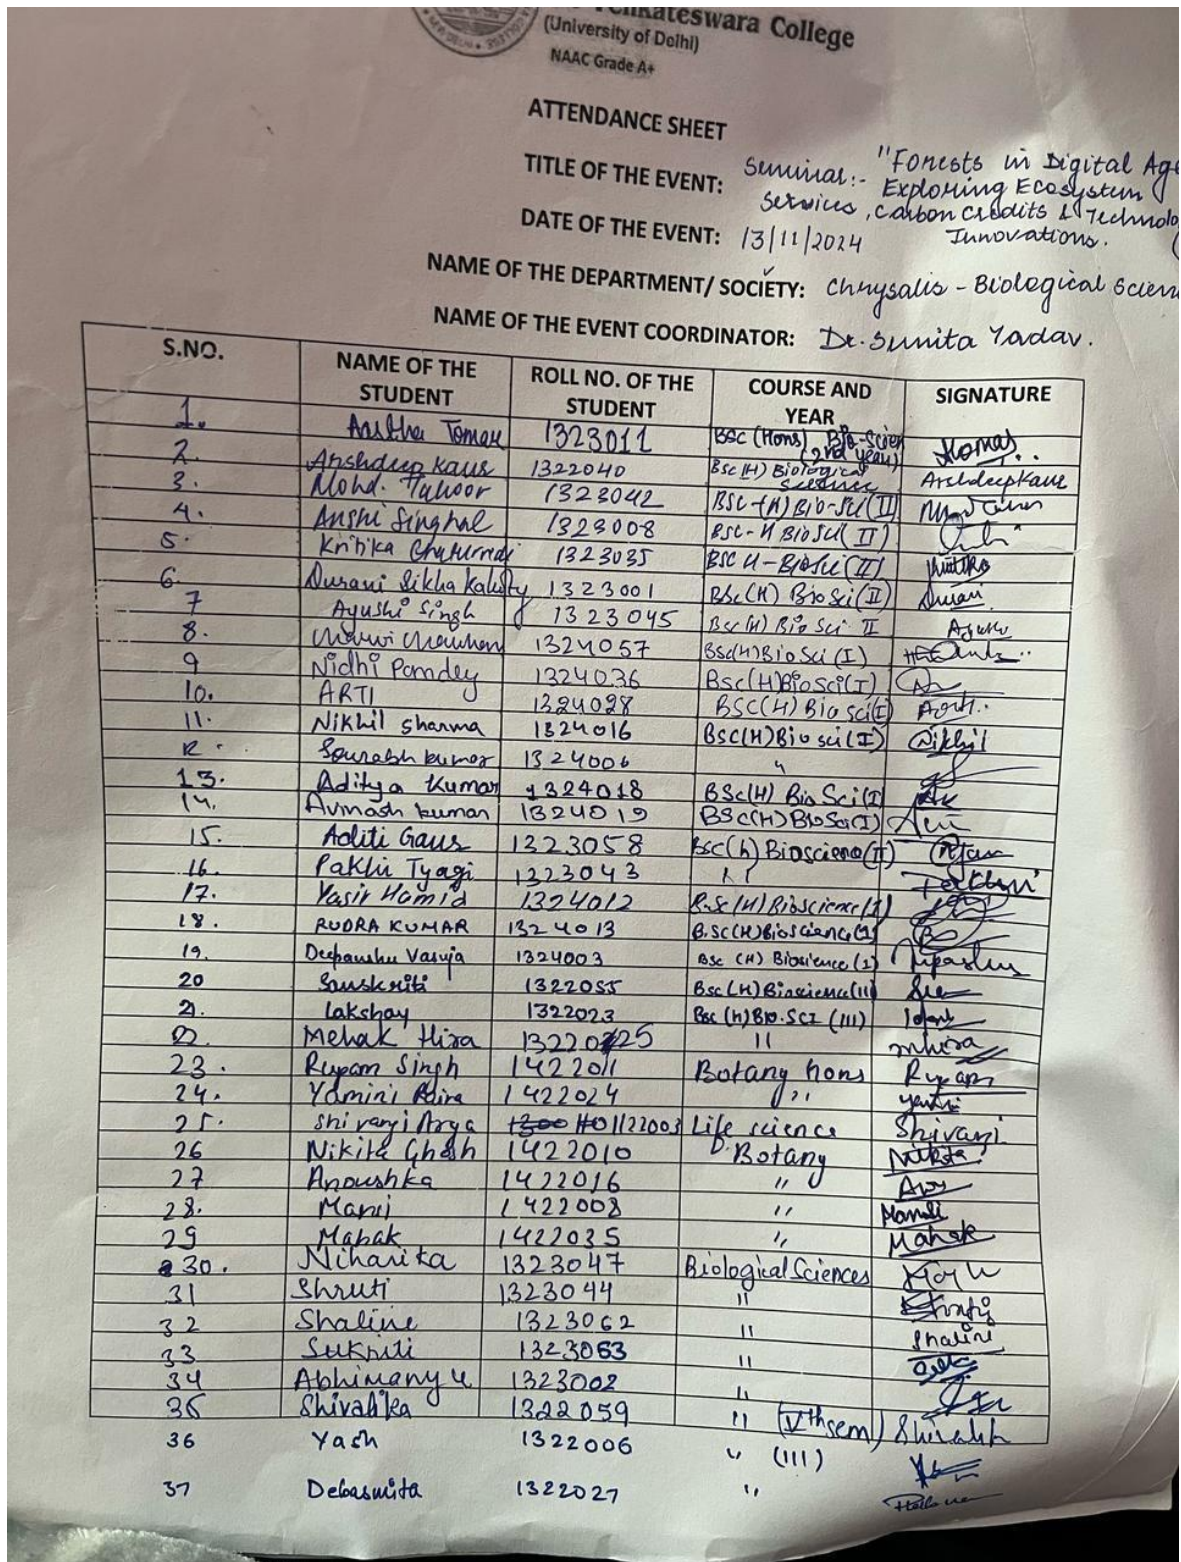 Venkateswara College
(University of Delhi)
NAAC Grade A+
ATTENDANCE SHEET
TITLE OF THE EVENT: Seminar:- "Forests in Digital Age
Exploring Ecosystem
Services, Carbon Credits & Technolo
Innovations.
DATE OF THE EVENT: 13/11/2024
NAME OF THE DEPARTMENT/ SOCIETY: Chrysalis - Biological Scien
NAME OF THE EVENT COORDINATOR: Dr. Sunita Yadav.
S.NO. NAME OF THE STUDENT ROLL NO. OF THE STUDENT COURSE AND YEAR SIGNATURE
1. Aastha Tomar 1323011 BSC (Hons) Bio-Scien (2nd year) Tomar
2. Arshdeep Kaur 1322040 Bsc (H) Biological Science Arshdeep Kaur
3. Mohd. 1323042 BSC-(H) BIO-SCI (II)
4. Anshi Singhal 1323008 BSC-H BIOSCI (II)
5. Kritika Chaturvedi 1323035 BSC H-BIOSCI (II) Kritika
6. Durani Sikha Kality 1323001 BSc(H) BioSci (II) Durani
7 Ayushi Singh 1323045 BSc(H) Bio Sci II Ayushi
8. Chauhan 1324057 BSc(H) BioSci (I)
9 Nidhi Pandey 1324036 BSc(H) BioSci(I)
10. ARTI 1324028 BSC(H) Bio Sci(I) Arti
11. Nikhil Sharma 1324016 BSc(H) Bio sci (I) Nikhil
12. Sourabh kumar 1324006 "
13. Aditya Kumar 1324018 BSc(H) Bio Sci (I)
14. Avinash kumar 1324019 BSC(H) BioSci(I)
15. Aditi Gaur 1323058 BSC(h) Bioscience(II)
16. Pakhi Tyagi 1323043 "
17. Yasir Hamid 1324012 B.Sc (H) Bioscience (I)
18. RUDRA KUMAR 1324013 B.SC(H) Bioscience(I)
19. Deepanshu Vasuja 1324003 BSc (H) Bioscience (I)
20 Sanskriti 1322055 Bsc (H) Bioscience(III)
21. Lakshay 1322023 BSc (H) BIO.SCI (III)
22. Mehak Hira 1322025 " mhira
23. Rupam Singh 1422011 Botany hons Rupam
24. Yamini 1422024 "
25. Shivanji Arya 1122003 Life science Shivanji
26 Nikita Ghosh 1422010 Botany Nikita
27 Anoushka 1422016 "
28. 1422008 "
29 Mahak 1422035 " Mahak
30. Niharika 1323047 Biological Sciences
31 Shruti 1323044 " Shruti
32 Shaline 1323062 " Shaline
33 Sukriti 1323063 "
34 Abhimanyu 1323002 "
35 Shivalika 1322059 " (Vth sem)
36 Yash 1322006 " (III)
37 Debasmita 1322027 "